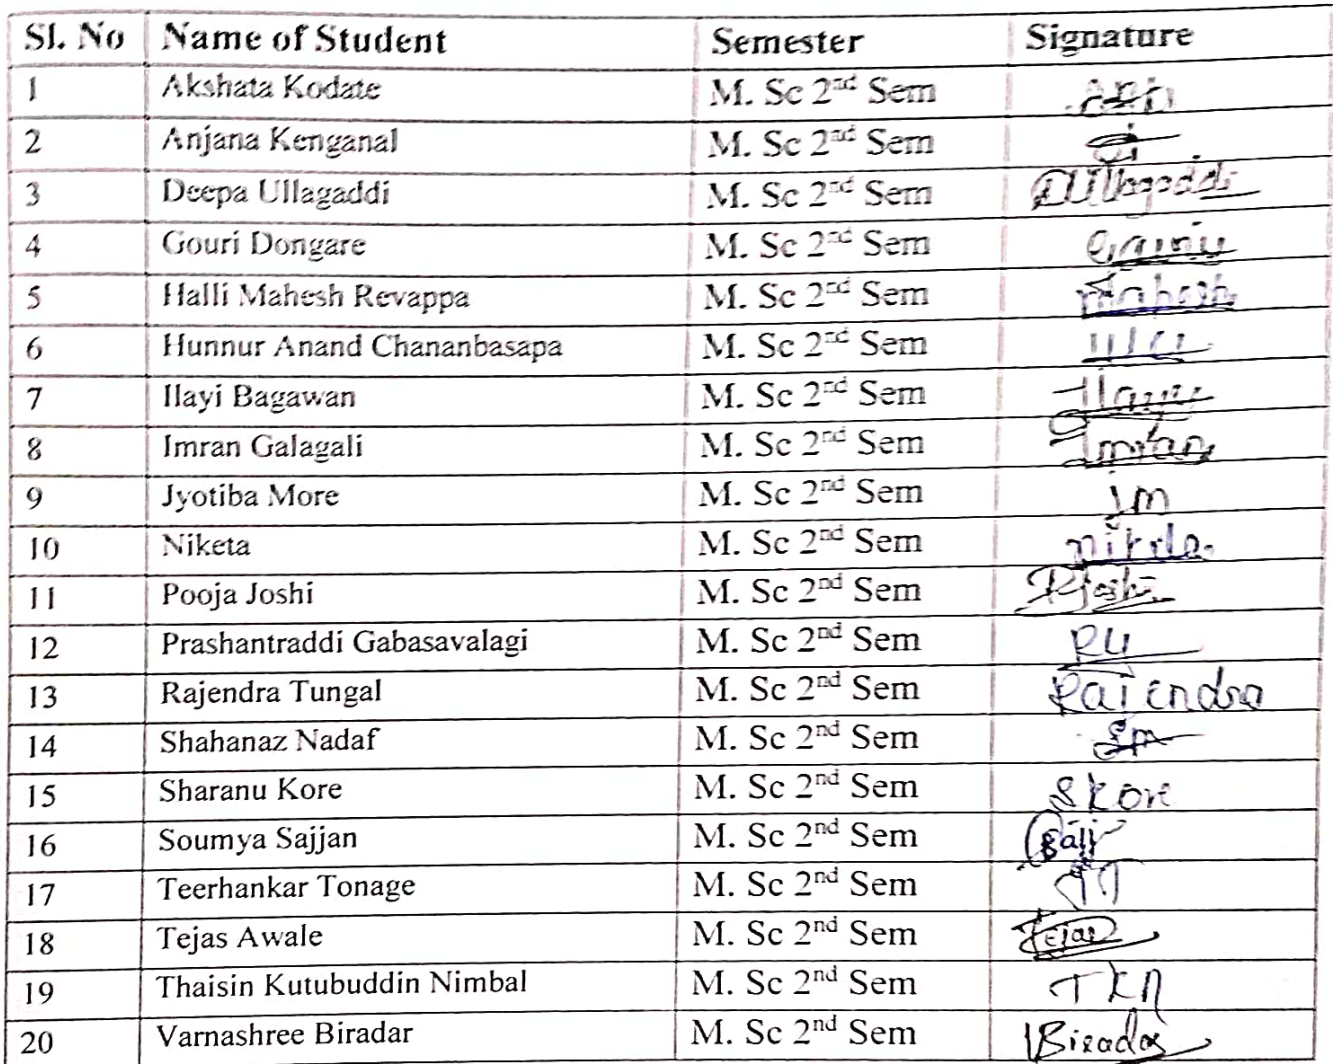 Sl. No Name of Student Semester Signature
1 Akshata Kodate M. Sc 2nd Sem
2 Anjana Kenganal M. Sc 2nd Sem
3 Deepa Ullagaddi M. Sc 2nd Sem DUllagaddi
4 Gouri Dongare M. Sc 2nd Sem
5 Halli Mahesh Revappa M. Sc 2nd Sem Mahesh
6 Hunnur Anand Chananbasapa M. Sc 2nd Sem
7 Ilayi Bagawan M. Sc 2nd Sem
8 Imran Galagali M. Sc 2nd Sem Imran
9 Jyotiba More M. Sc 2nd Sem Jm
10 Niketa M. Sc 2nd Sem
11 Pooja Joshi M. Sc 2nd Sem PJoshi
12 Prashantraddi Gabasavalagi M. Sc 2nd Sem
13 Rajendra Tungal M. Sc 2nd Sem Rajendra
14 Shahanaz Nadaf M. Sc 2nd Sem
15 Sharanu Kore M. Sc 2nd Sem SKore
16 Soumya Sajjan M. Sc 2nd Sem
17 Teerhankar Tonage M. Sc 2nd Sem TT
18 Tejas Awale M. Sc 2nd Sem Tejas
19 Thaisin Kutubuddin Nimbal M. Sc 2nd Sem TKN
20 Varnashree Biradar M. Sc 2nd Sem VBiradar